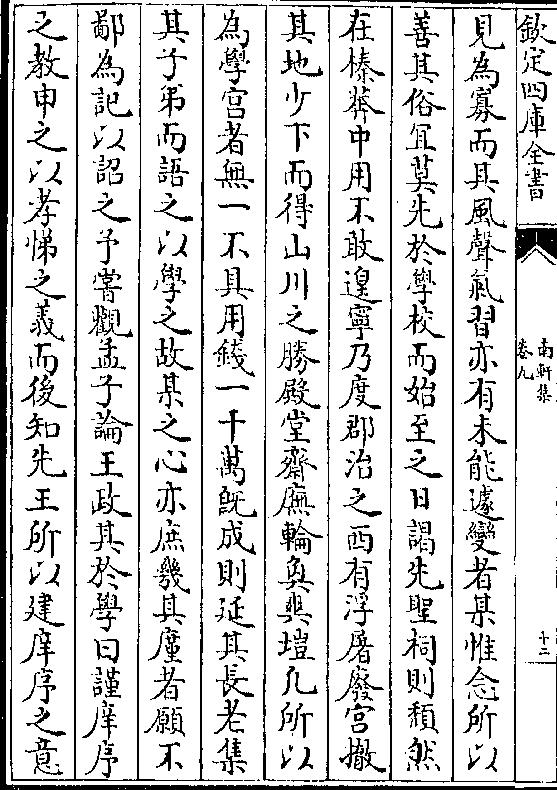 欽定四庫全書
南軒集
卷九
十二
見為寡而其風聲氣習亦有未能遽變者某惟念所以
善其俗宜莫先於學校而始至之日謁先聖祠則頽然
在榛莽中用不敢遑寧乃度郡治之西有浮屠廢宮撤
其地少下而得山川之勝殿堂齋廡輪奐爽塏凡所以
為學宮者無一不具用錢一千萬既成則延其長老集
其子弟而語之以學之故某之心亦庶幾其廑者願不
鄙為記以詔之予嘗觀孟子論王政其於學曰謹庠序
之教申之以孝悌之義而後知先王所以建庠序之意